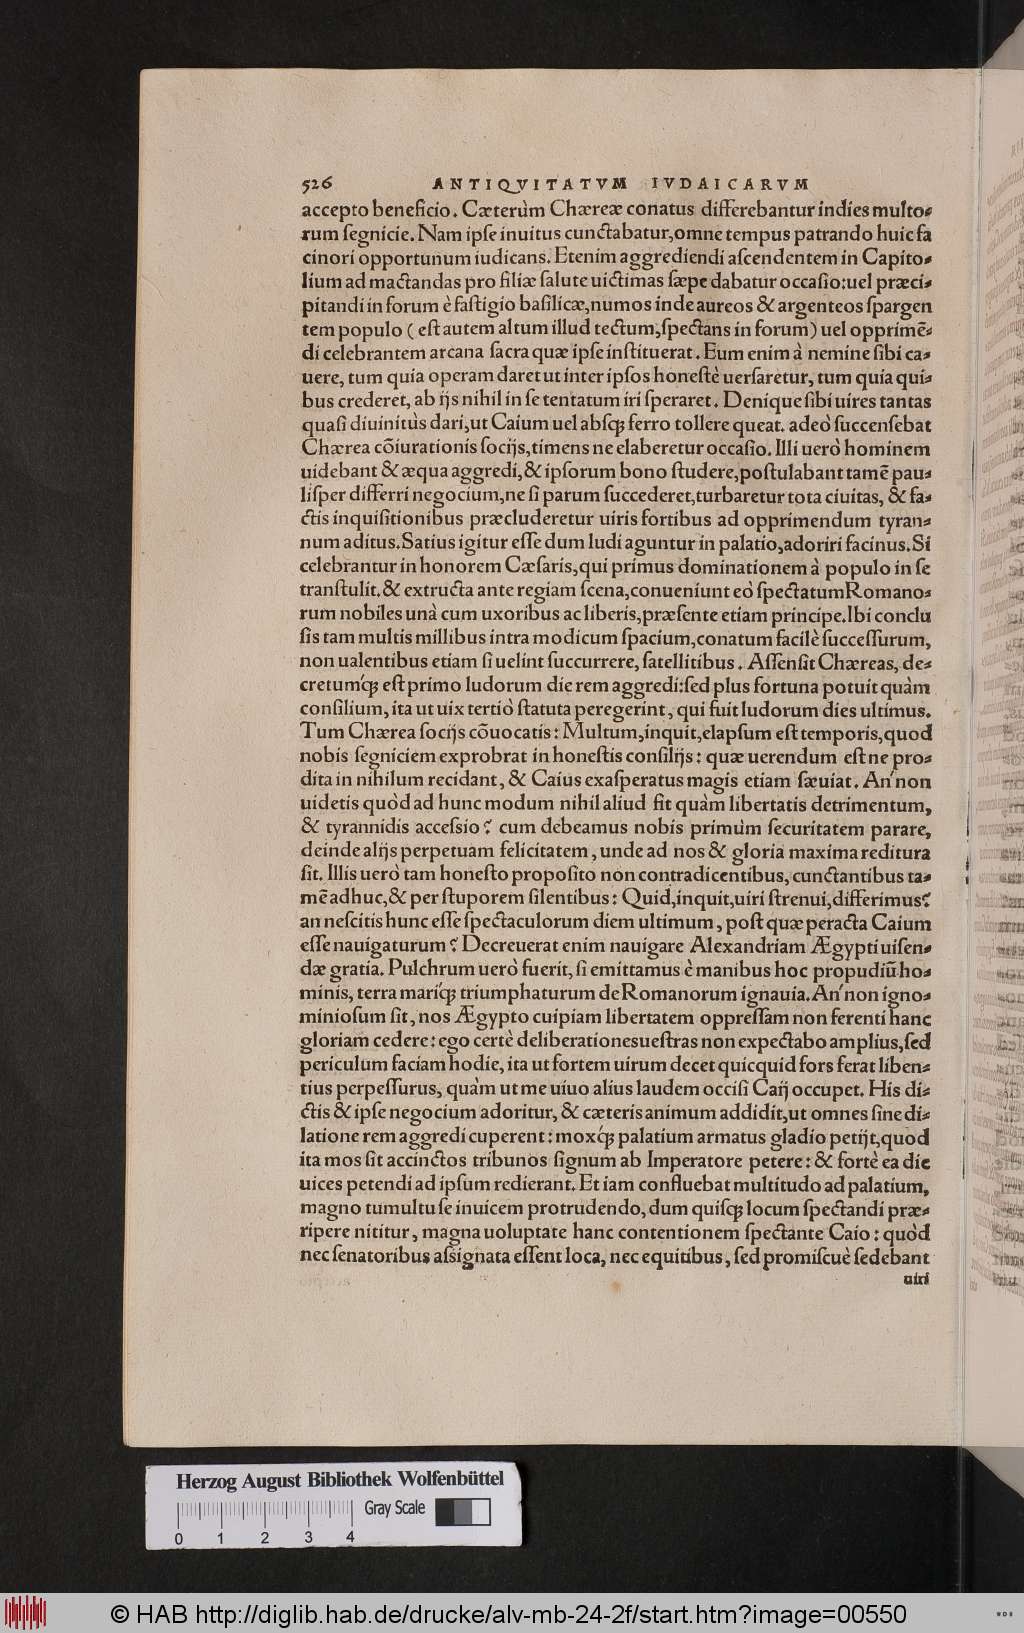 526 ANTIQVITATVM IVDAICARVM
accepto beneficio. Cæterùm Chæreæ conatus differebantur indies multo⸗
rum ſegnicie. Nam ipſe inuitus cunctabatur, omne tempus patrando huic fa
cinori opportunum iudicans. Etenim aggrediendi aſcendentem in Capito⸗
lium ad mactandas pro filiæ ſalute uictimas ſæpe dabatur occaſio: uel præci⸗
pitandi in forum è faſtigio baſilicæ, numos inde aureos & argenteos ſpargen
tem populo (eſt autem altum illud tectum, ſpectans in forum) uel opprimē⸗
di celebrantem arcana ſacra quæ ipſe inſtituerat. Eum enim à nemine ſibi ca⸗
uere, tum quia operam daret ut inter ipſos honeſtè uerſaretur, tum quia qui⸗
bus crederet, ab ijs nihil in ſe tentatum iri ſperaret. Denique ſibi uires tantas
quaſi diuinitùs dari, ut Caium uel absq; ferro tollere queat. adeò ſuccenſebat
Chærea cõiurationis ſocijs, timens ne elaberetur occaſio. Illi uerò hominem
uidebant & æqua aggredi, & ipſorum bono ſtudere, poſtulabant tamē pau⸗
liſper differri negocium, ne ſi parum ſuccederet, turbaretur tota ciuitas, & fa⸗
ctis inquiſitionibus præcluderetur uiris fortibus ad opprimendum tyran⸗
num aditus. Satius igitur eſſe dum ludi aguntur in palatio, adoriri facinus. Si
celebrantur in honorem Cæſaris, qui primus dominationem à populo in ſe
tranſtulit. & extructa ante regiam ſcena, conueniunt eò ſpectatum Romano⸗
rum nobiles unà cum uxoribus ac liberis, præſente etiam principe. Ibi conclu
ſis tam multis millibus intra modicum ſpacium, conatum facilè ſucceſſurum,
non ualentibus etiam ſi uelint ſuccurrere, ſatellitibus. Aſſenſit Chæreas, de⸗
cretumq́; eſt primo ludorum die rem aggredi: ſed plus fortuna potuit quàm
conſilium, ita ut uix tertiò ſtatuta peregerint, qui fuit ludorum dies ultimus.
Tum Chærea ſocijs cōuocatis: Multum, inquit, elapſum eſt temporis, quod
nobis ſegniciem exprobrat in honeſtis conſilijs: quæ uerendum eſt ne pro⸗
dita in nihilum recidant, & Caius exaſperatus magis etiam ſæuiat. An' non
uidetis quòd ad hunc modum nihil aliud fit quàm libertatis detrimentum,
& tyrannidis acceſsio? cum debeamus nobis primùm ſecuritatem parare,
deinde alijs perpetuam felicitatem, unde ad nos & gloria maxima reditura
ſit. Illis uerò tam honeſto propoſito non contradicentibus, cunctantibus ta⸗
mē adhuc, & per ſtuporem ſilentibus: Quid, inquit, uiri ſtrenui, differimus?
an neſcitis hunc eſſe ſpectaculorum diem ultimum, poſt quæ peracta Caium
eſſe nauigaturum? Decreuerat enim nauigare Alexandriam Ægypti uiſen⸗
dæ gratia. Pulchrum uerò fuerit, ſi emittamus è manibus hoc propudiū ho⸗
minis, terra mariq́; triumphaturum de Romanorum ignauia. An' non igno⸗
minioſum ſit, nos Ægypto cuipiam libertatem oppreſſam non ferenti hanc
gloriam cedere: ego certè deliberationes ueſtras non expectabo amplius, ſed
periculum faciam hodie, ita ut fortem uirum decet quicquid fors ferat liben⸗
tius perpeſſurus, quàm ut me uiuo alius laudem occiſi Caij occupet. His di⸗
ctis & ipſe negocium adoritur, & cæteris animum addidit, ut omnes ſine di⸗
latione rem aggredi cuperent: moxq́; palatium armatus gladio petijt, quod
ita mos ſit accinctos tribunos ſignum ab Imperatore petere: & fortè ea die
uices petendi ad ipſum redierant. Et iam confluebat multitudo ad palatium,
magno tumultu ſe inuicem protrudendo, dum quiſq; locum ſpectandi præ⸗
ripere nititur, magna uoluptate hanc contentionem ſpectante Caio: quòd
nec ſenatoribus aſsignata eſſent loca, nec equitibus, ſed promiſcuè ſedebant
uiri
Herzog August Bibliothek Wolfenbüttel
Gray Scale
0 1 2 3 4
© HAB http://diglib.hab.de/drucke/alv-mb-24-2f/start.htm?image=00550